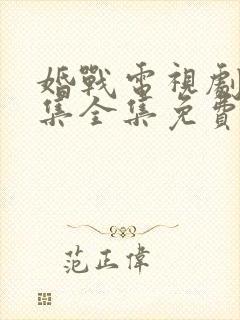 婚戰電視劇
集全集免費
范正偉